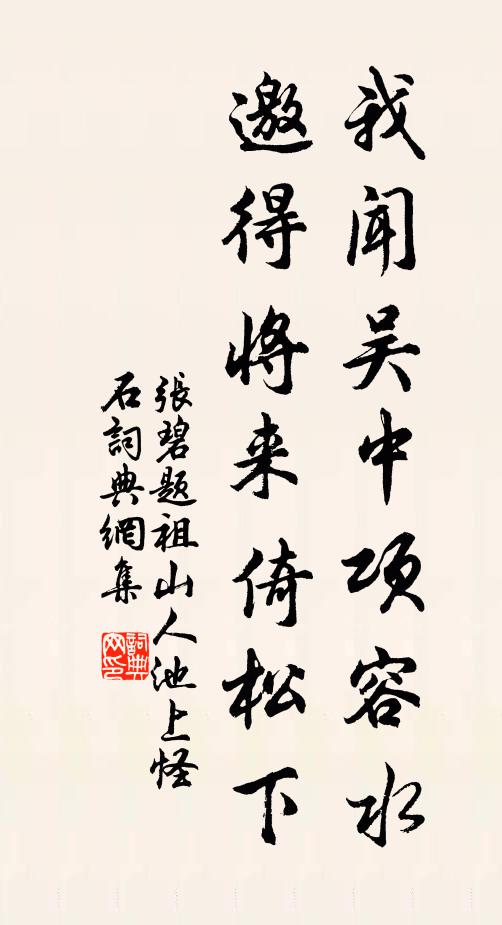 我闻吴中项容水
邀得将来倚松下
張碧题祖山人池上怪
石詞典網集
詞典
网印